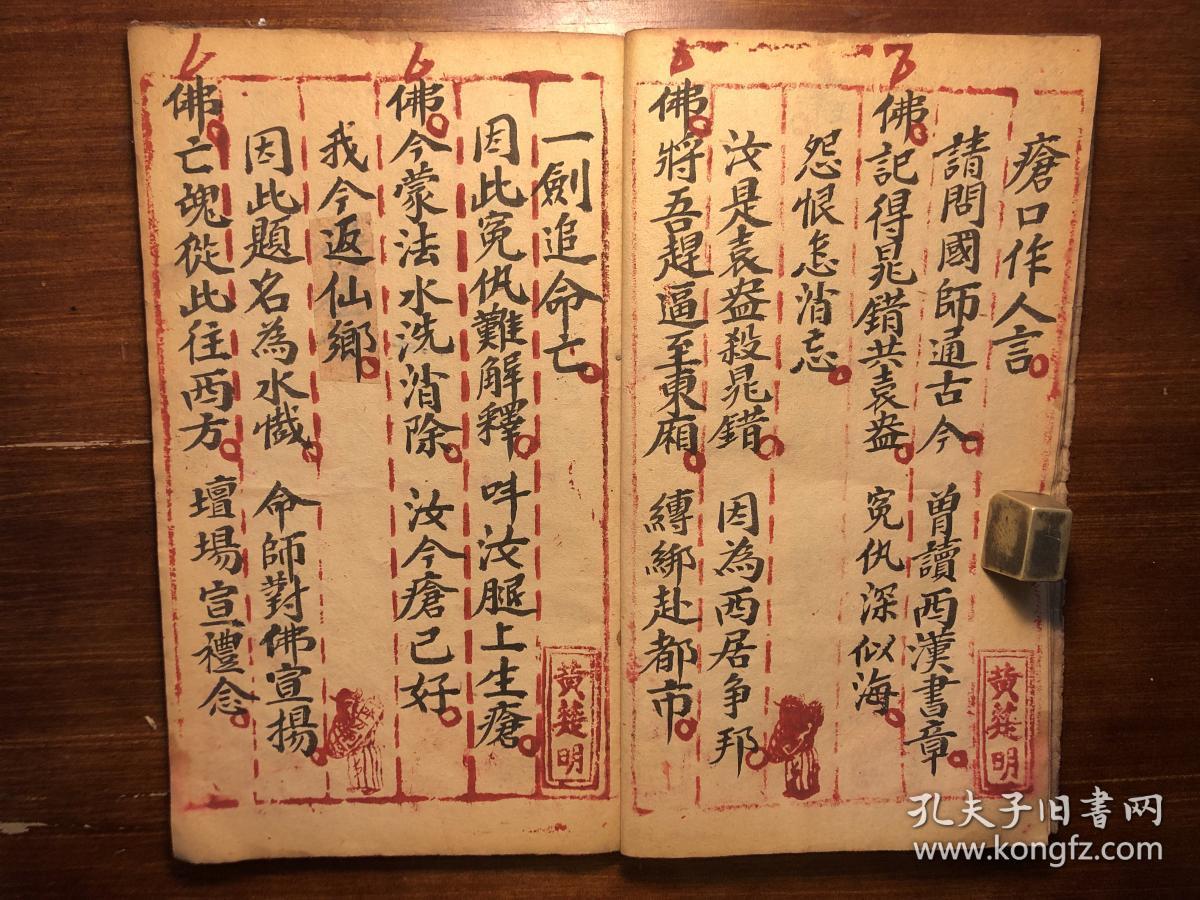 瘡口作人言
請問國師通古今　曾讀西漢書章
佛記得晁錯共袁盎　冤仇深似海
怨恨怎消忘
汝是袁盎殺晁錯　因為西居争邦
佛將吾趕逼至東廂　縛綁赴都市
黃楚明
一劍追命亡
因此冤仇難解釋　叫汝腿上生瘡
佛今蒙法水洗消除　汝今瘡已好
我今返仙鄉
因此題名為水懴　命師對佛宣揚
佛亡魂從此往西方　壇場宣禮念
黃楚明
孔夫子旧书网
www.kongfz.com